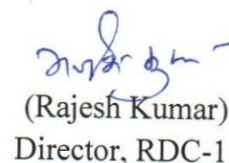 (Rajesh Kumar)
Director, RDC-1